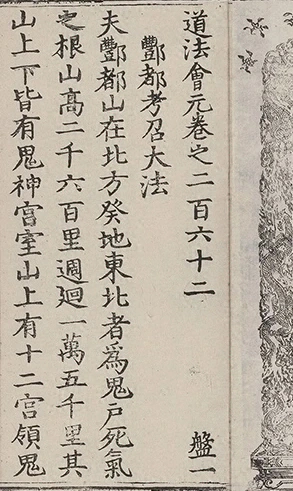 道法會元卷之二百六十二 盤一
酆都考召大法
夫酆都山在北方癸地東北者爲鬼戸死氣
之根山高二千六百里週廻一萬五千里其
山上下皆有鬼神宫室山上有十二宫領鬼